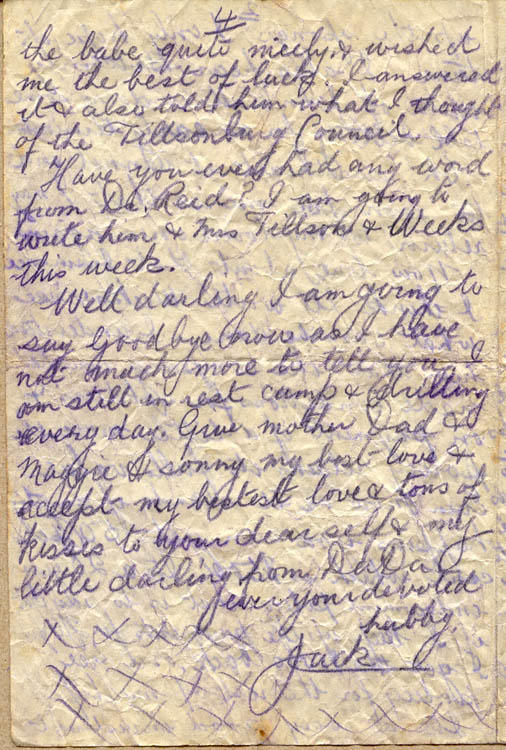 4
the babe quite nicely & wished
me the best of luck. I answered
it & also told him what I thought
of the Tillsonburg Council.
Have you ever had any word
from Dr. Reid? I am going to
write him & Mrs Tillson & Weeks
this week.
Well darling I am going to
say Goodbye now as I have
not much more to tell you. I
am still in rest camp & drilling
every day. Give mother Dad &
Maggie & sonny my best love &
accept my bestest love & tons of
kisses to your dear self & my
little darling from DaDa
ever your devoted
hubby
X X X X X X
Jack
X X X X X X
X X X X X X X X